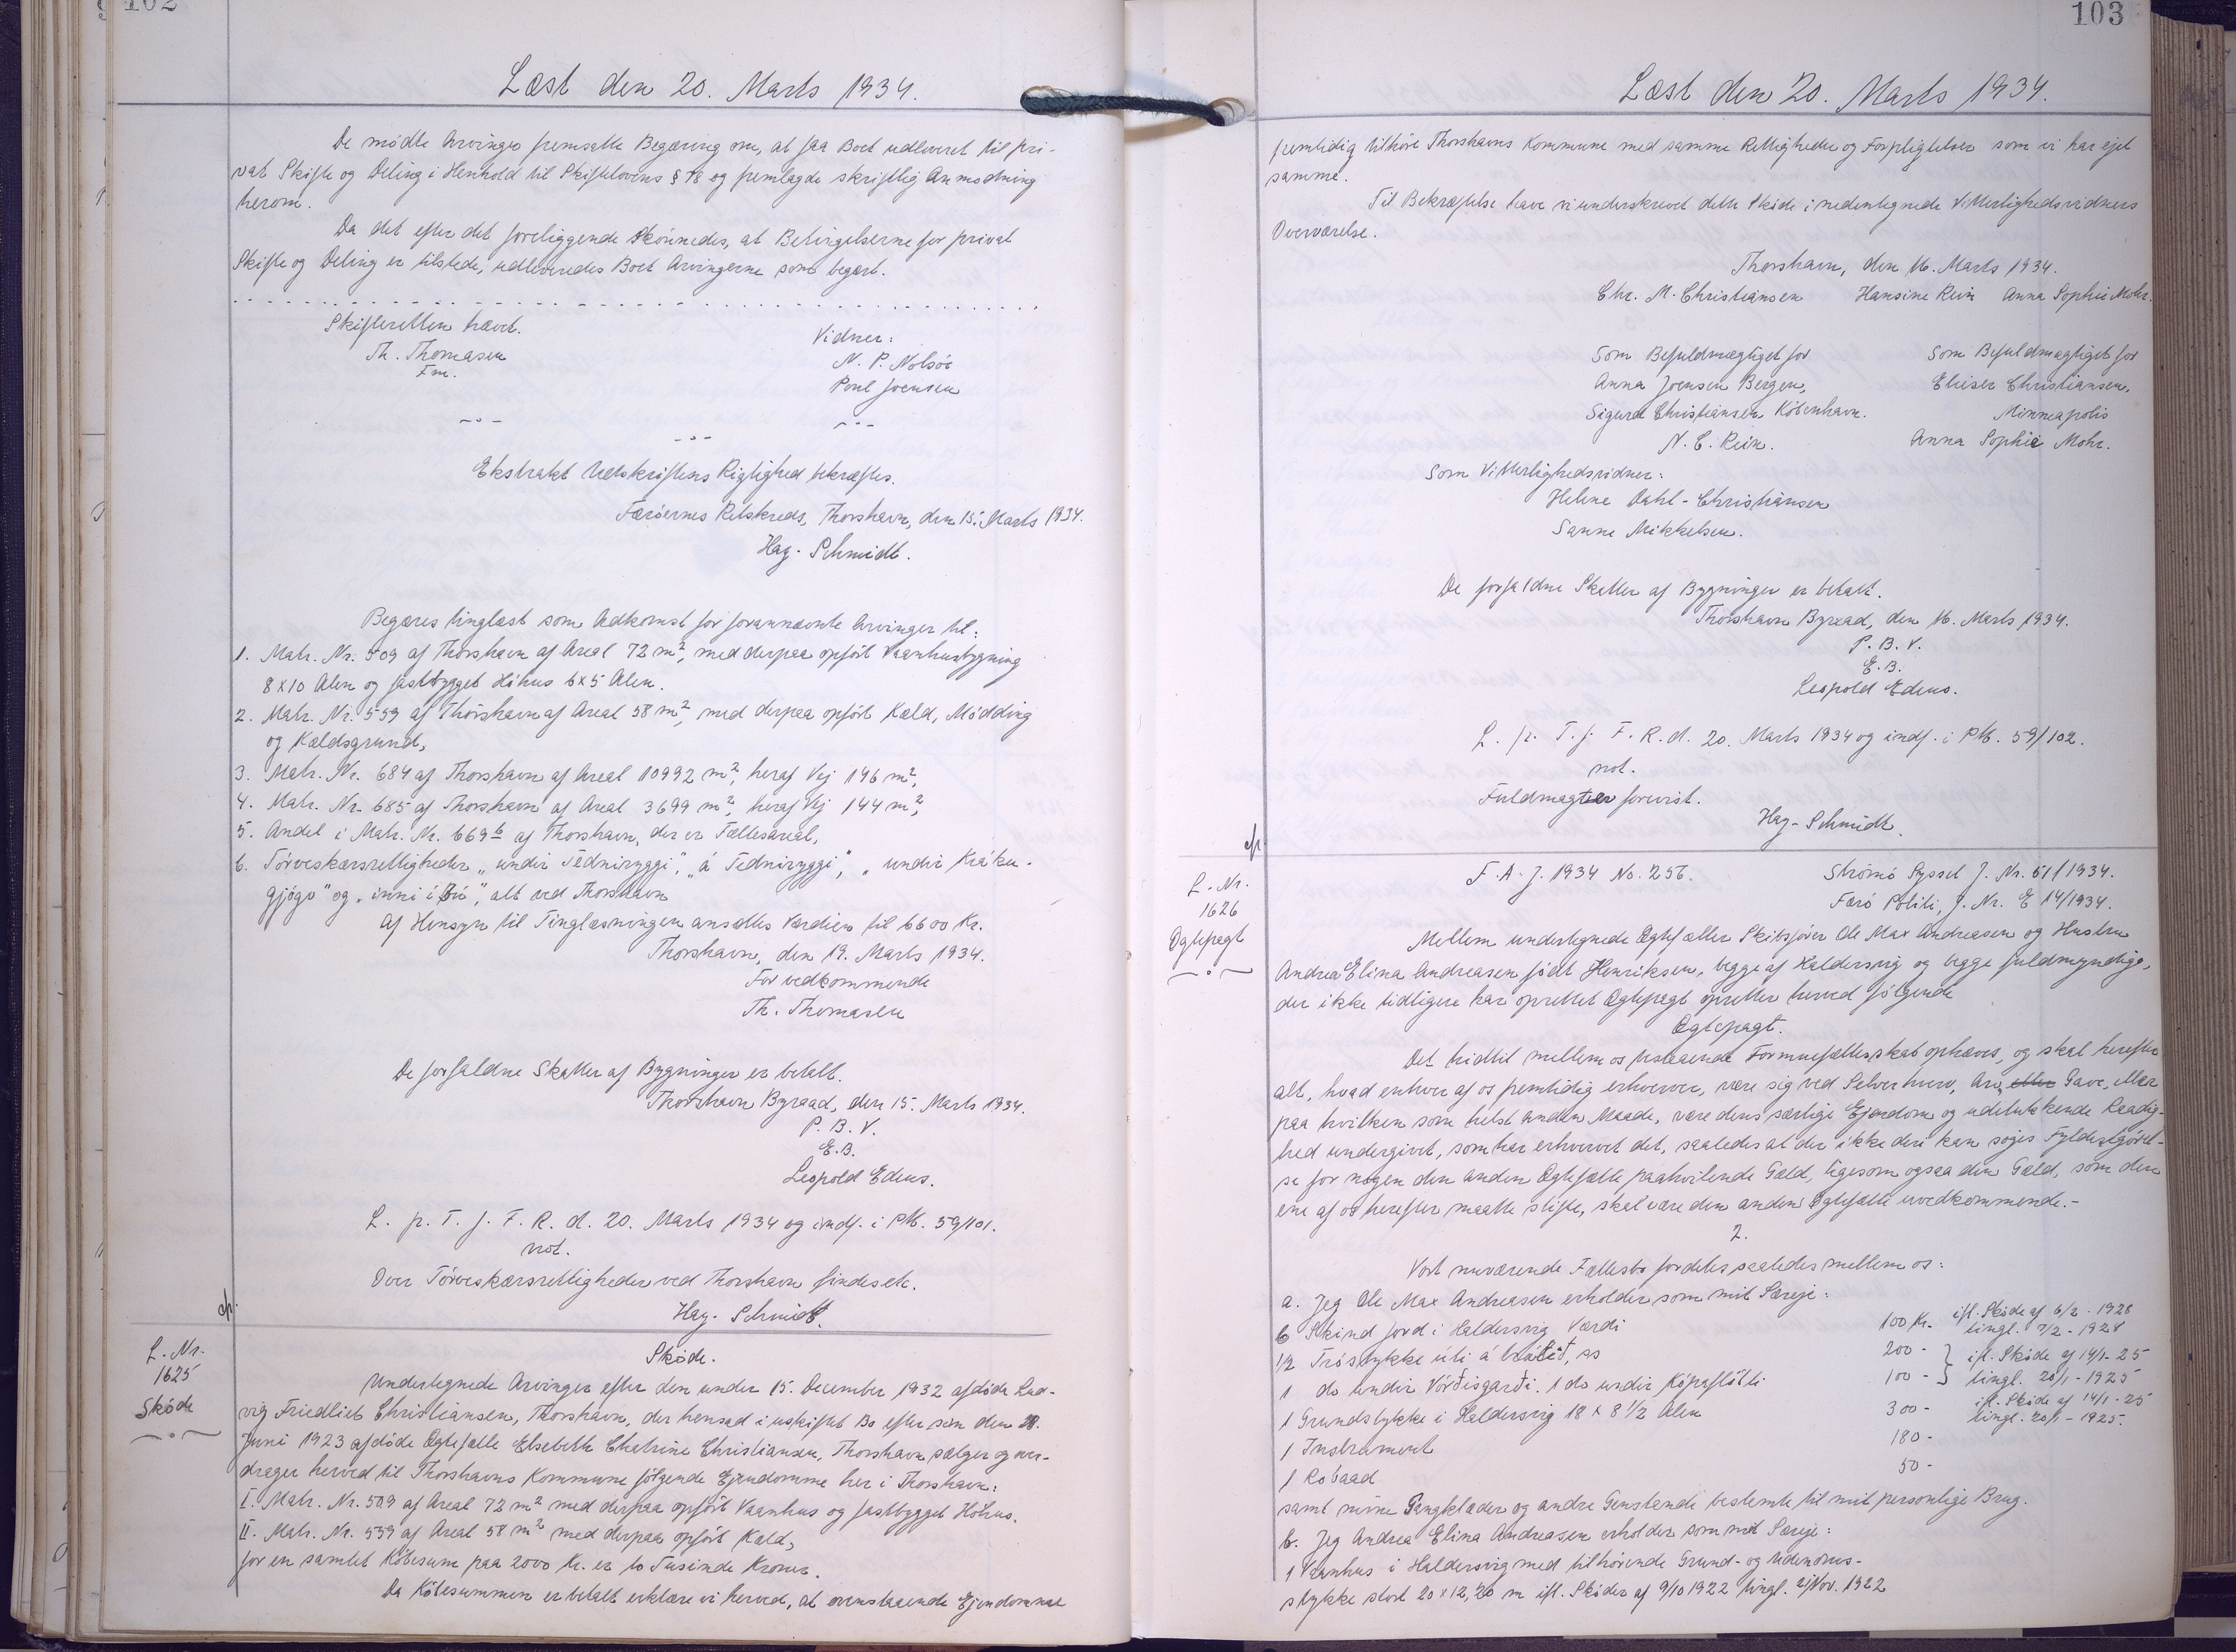 102
Læst den 20. Marts 1934.
De mødte Arvinger fremsatte Begæring om, at faa Boet udleveret til pri-
vat Skifte og Deling i Henhold til Skiftelovens § 78 og fremlagde skriftlig Anmodning
herom.
Da det efter det foreliggende skønnedes, at Betingelserne for privat
Skifte og Deling er tilstede, udleveredes Boet Arvingerne som begært.
Skifteretten hævet.
Th. Thomasen
Fm.
Vidner:
N. P. Nolsøe
Poul Joensen
Ekstrakt Udskriftens Rigtighed bekræftes.
Færøernes Retskreds, Thorshavn, den 15. Marts 1934.
Hag. Schmidt.
Begæres tinglæst som Adkomst for forannævnte Arvinger til:
1. Matr. Nr. 509 af Thorshavn af Areal 72 m², med derpaa opført Vaanhusbygning
8 x 10 Alen og fastbygget Höhus 6 x 5 Alen.
2. Matr. Nr. 559 af Thorshavn af Areal 58 m², med derpaa opført Kæld, Mødding
og Kældsgrund,
3. Matr. Nr. 684 af Thorshavn af Areal 10992 m², heraf Vej 146 m²,
4. Matr. Nr. 685 af Thorshavn af Areal 3699 m², heraf Vej 144 m²,
5. Andel i Matr. Nr. 669 b af Thorshavn, der er Fællesareal,
6. Tørveskærsrettigheder "undir Tedniryggi", "á Tedniryggi", "undir Kráku-
gjógv" og "inni í", alt ved Thorshavn
Af Hensyn til Tinglæsningen ansættes Værdien til 6600 Kr.
Thorshavn, den 19. Marts 1934.
For vedkommende
Th. Thomasen
De forfaldne Skatter af Bygninger er betalt.
Thorshavn Byraad, den 15. Marts 1934.
P. B. V.
E. B.
Leopold Edens.
L. p. T. f. F. R. d. 20. Marts 1934 og indf. i PM. 59/101.
not.
Over Tørveskærsrettigheder ved Thorshavn findes etc.
Hag. Schmidt.
L. Nr.
1625
Skøde
Skøde.
Undertegnede Arvinger efter den under 15. December 1932 afdøde Lud-
vig Friedlieb Christiansen, Thorshavn, der hensad i uskiftet Bo efter sin den 18.
Juni 1923 afdøde Ægtefælle Elsebeth Chatrine Christiansen, Thorshavn sælger og over-
drager herved til Thorshavns Kommune følgende Ejendomme her i Thorshavn:
I. Matr. Nr. 509 af Areal 72 m² med derpaa opført Vaanhus og fastbygget Höhus.
II. Matr. Nr. 559 af Areal 58 m² med derpaa opført Kæld,
for en samlet Købesum paa 2000 Kr. er to Tusinde Kroner.
Da Købesummen er betalt erklære vi herved, at ovenstaaende Ejendomme
103
Læst den 20. Marts 1934.
fremtidig tilhøre Thorshavns Kommune med samme Rettigheder og Forpligtelser som vi har ejet
samme.
Til Bekræftelse have vi underskrevet dette Skøde i nedentegnede Vitterlighedsvidners
Overværelse.
Thorshavn, den 16. Marts 1934.
Chr. M. Christiansen Hansine Rein Anna Sophie Mohr.
Som Befuldmægtiget for
Anna Joensen Bergen,
Sigurd Christiansen, København.
N. C. Rein.
Som Befuldmægtiget for
Elieser Christiansen,
Minneapolis
Anna Sophie Mohr.
Som Vitterlighedsvidner:
Helene Dahl-Christiansen
Sanne Mikkelsen.
De forfaldne Skatter af Bygninger er betalt.
Thorshavn Byraad, den 16. Marts 1934.
P. B. V.
E. B.
Leopold Edens.
L. p. T. f. F. R. d. 20. Marts 1934 og indf. i PM. 59/102.
not.
Fuldmagter forevist.
Hag. Schmidt.
L. Nr.
1626
Ægtepagt
F. A. J. 1934 No. 256.
Strømø Syssel J. Nr. 51/1934.
Færø Politi, J. Nr. E 14/1934.
Mellem undertegnede Ægtefæller Skibsfører Ole Max Andreasen og Hustru
Andrea Elina Andreasen født Henriksen, begge af Haldersvig og begge fuldmyndige,
der ikke tidligere har oprettet Ægtepagt opretter herved følgende
Ægtepagt.
Det hidtil mellem os bestaaende Formuefællesskab ophæves, og skal herefter
alt, hvad enhver af os fremtidig erhverver, være sig ved Selverhverv, Arv, eller Gave, eller
paa hvilken som helst anden Maade, være dens særlige Ejendom og udelukkende Raadig-
hed undergivet, som har erhvervet det, saaledes at der ikke deri kan søges Fyldestgørel-
se for nogen den anden Ægtefælle paahvilende Gæld, ligesom ogsaa den Gæld, som den
ene af os herefter maatte stifte, skal være den anden Ægtefælle uvedkommende.-
2.
Vort nuværende Fællesbo fordeles saaledes mellem os:
a. Jeg Ole Max Andreasen erholder som mit Særeje:
6 Skind Jord i Haldersvig Værdi 100 Kr. ifl. Skøde af 6/2 - 1928
tingl. 7/2 - 1928
1/2 Tróstykke úti á 200 - ifl. Skøde af 14/1-25
1 do undir Vórðisgarði. 1 do undir 100 - tingl. 20/1 - 1925
1 Grundstykke i Haldersvig 18 x 8 1/2 Alen 300 - ifl. Skøde af 14/1-25
tingl. 20/1 - 1925.
1 Instrument 180 -
1 Robaad 50 -
samt mine Gangklæder og andre Genstande bestemte til mit personlige Brug.
b. Jeg Andrea Elina Andreasen erholder som mit Særeje:
1 Vaanhus i Haldersvig med tilhørende Grund- og Udenoms-
stykke stort 20 x 12,20 m ifl. Skøder af 9/10 1922 tingl. Nov. 1922